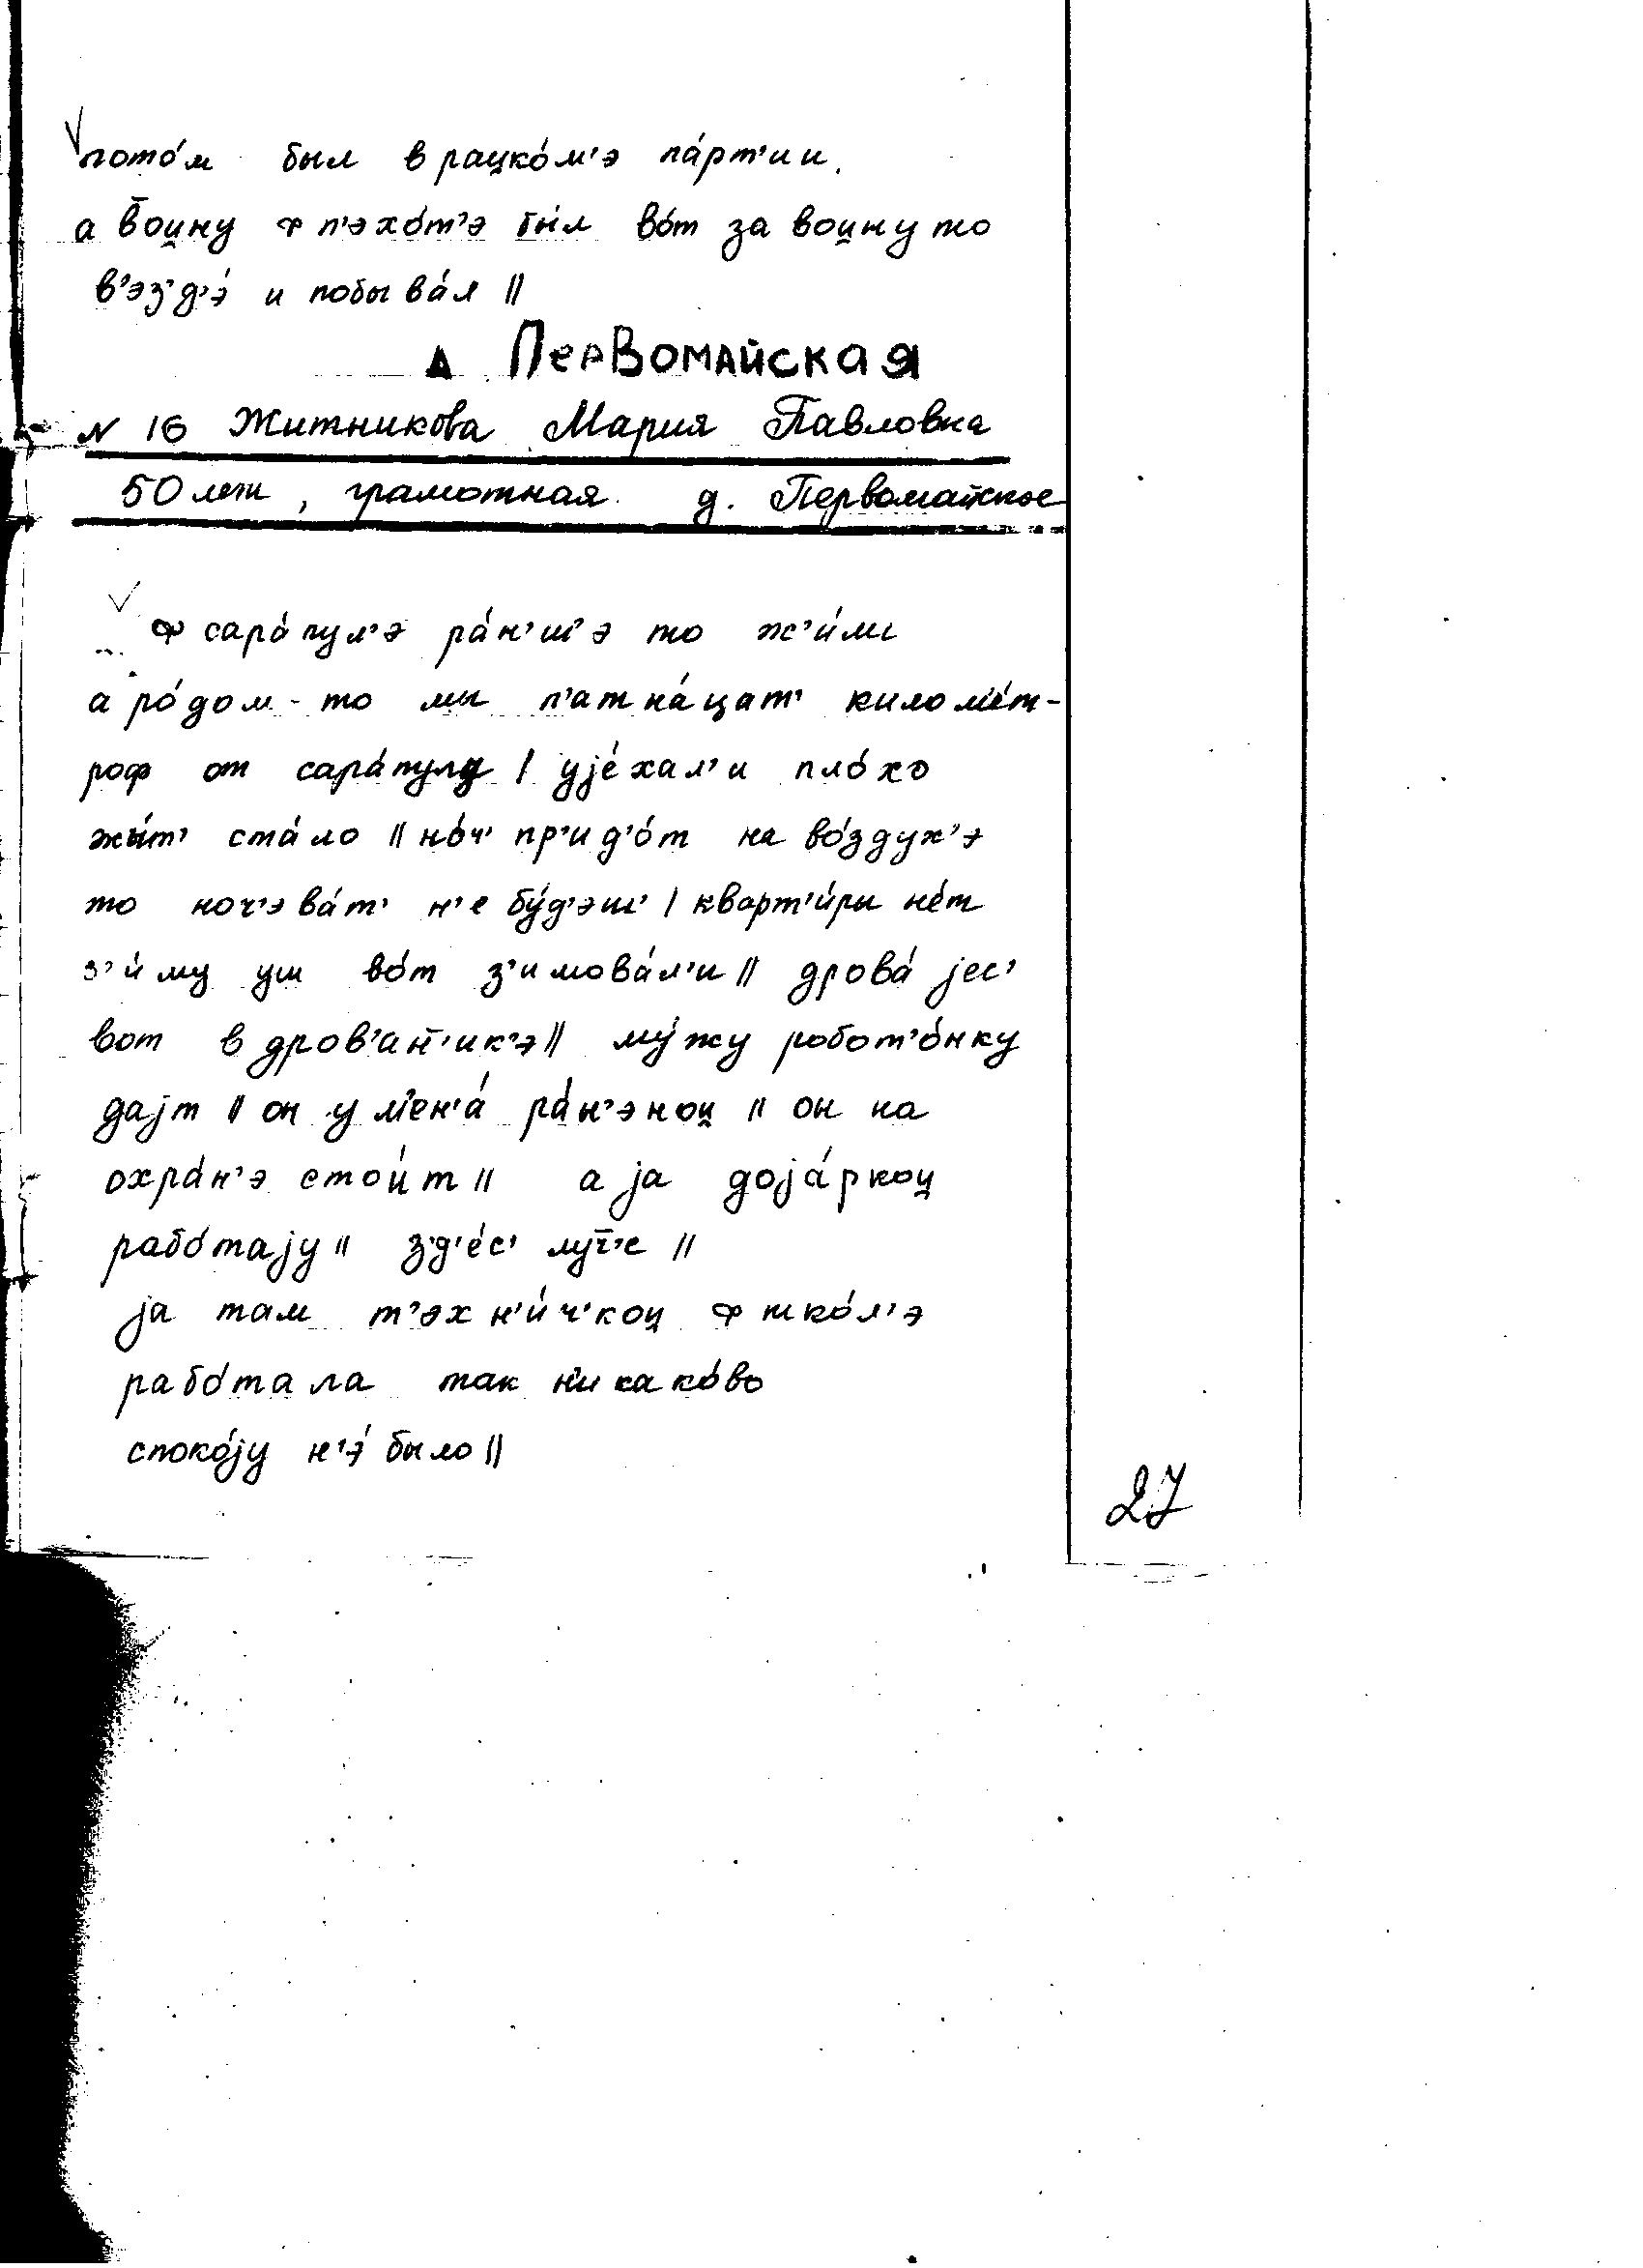 пото́м был в рацко́м'э па́рт'ии.
а вои̯ну ф п'эхо́т'э бы́л во́т за вои̯ну то
в'эз'д'э́ и побыва́л ||
Δ ПерВомайская
N 16 Житникова Мария Павловна
50 лет, грамотная. д. Первомайское
ф сара́пул'э ра́н'ш'э то ж'и́ли
а ро́дом-то мы п'атна́цат' киломе́т-
роф от сара́пула | ује́хал'и пло́хо
жы́т' ста́ло || но́ч' пр'ид'о́т на во́здух'э
то ноч'эва́т' н'е бу́д'эш' | кварт'и́ры не́т
з'и́му уш во́т з'имова́л'и || дрова́ јес'
вот в дров'ан'ик'э || му́жу робот'о́нку
дајт || он у м'ен'а́ ра́н'энои̯ || он на
охра́н'э стои́т || а ја доја́ркои̯
рабо́тају || з'д'е́с' луч̄'е ||
ја там т'эхн'и́ч'кои̯ ф шко́л'э
рабо́тала так н'икако́во
споко́ју н'э́ было ||
27